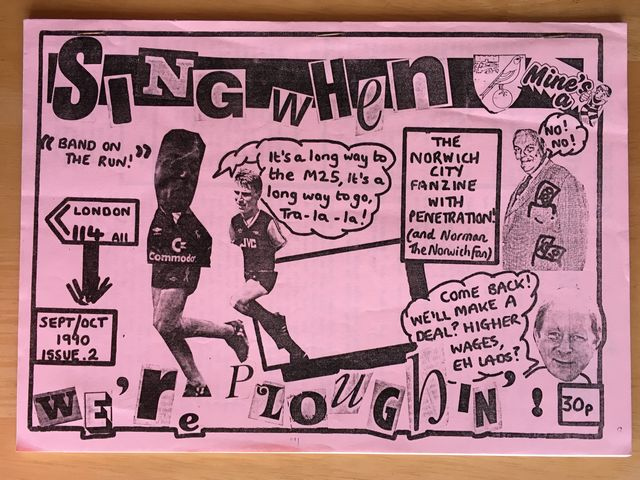 SiNG wHen
Mine's
a
"BAND ON
THE RUN!"
It's a long way to
the M25, it's a
long way to go,
Tra-la-la!
THE
NORWICH
CITY
FANZINE
WITH
PENETRATION!
(and Norman
The Norwich fan)
NO!
NO!
LONDON
114 A11
Commodore
JVC
SEPT/OCT
1990
ISSUE.2
COME BACK!
WE'LL MAKE A
DEAL? HIGHER
WAGES,
EH LADS?
WE'Re PLOUGhIN'!
30p